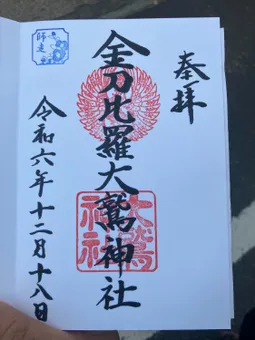 奉拝
金刀比羅大鷲神社
大鷲
神社
師走
令和六年十二月十八日